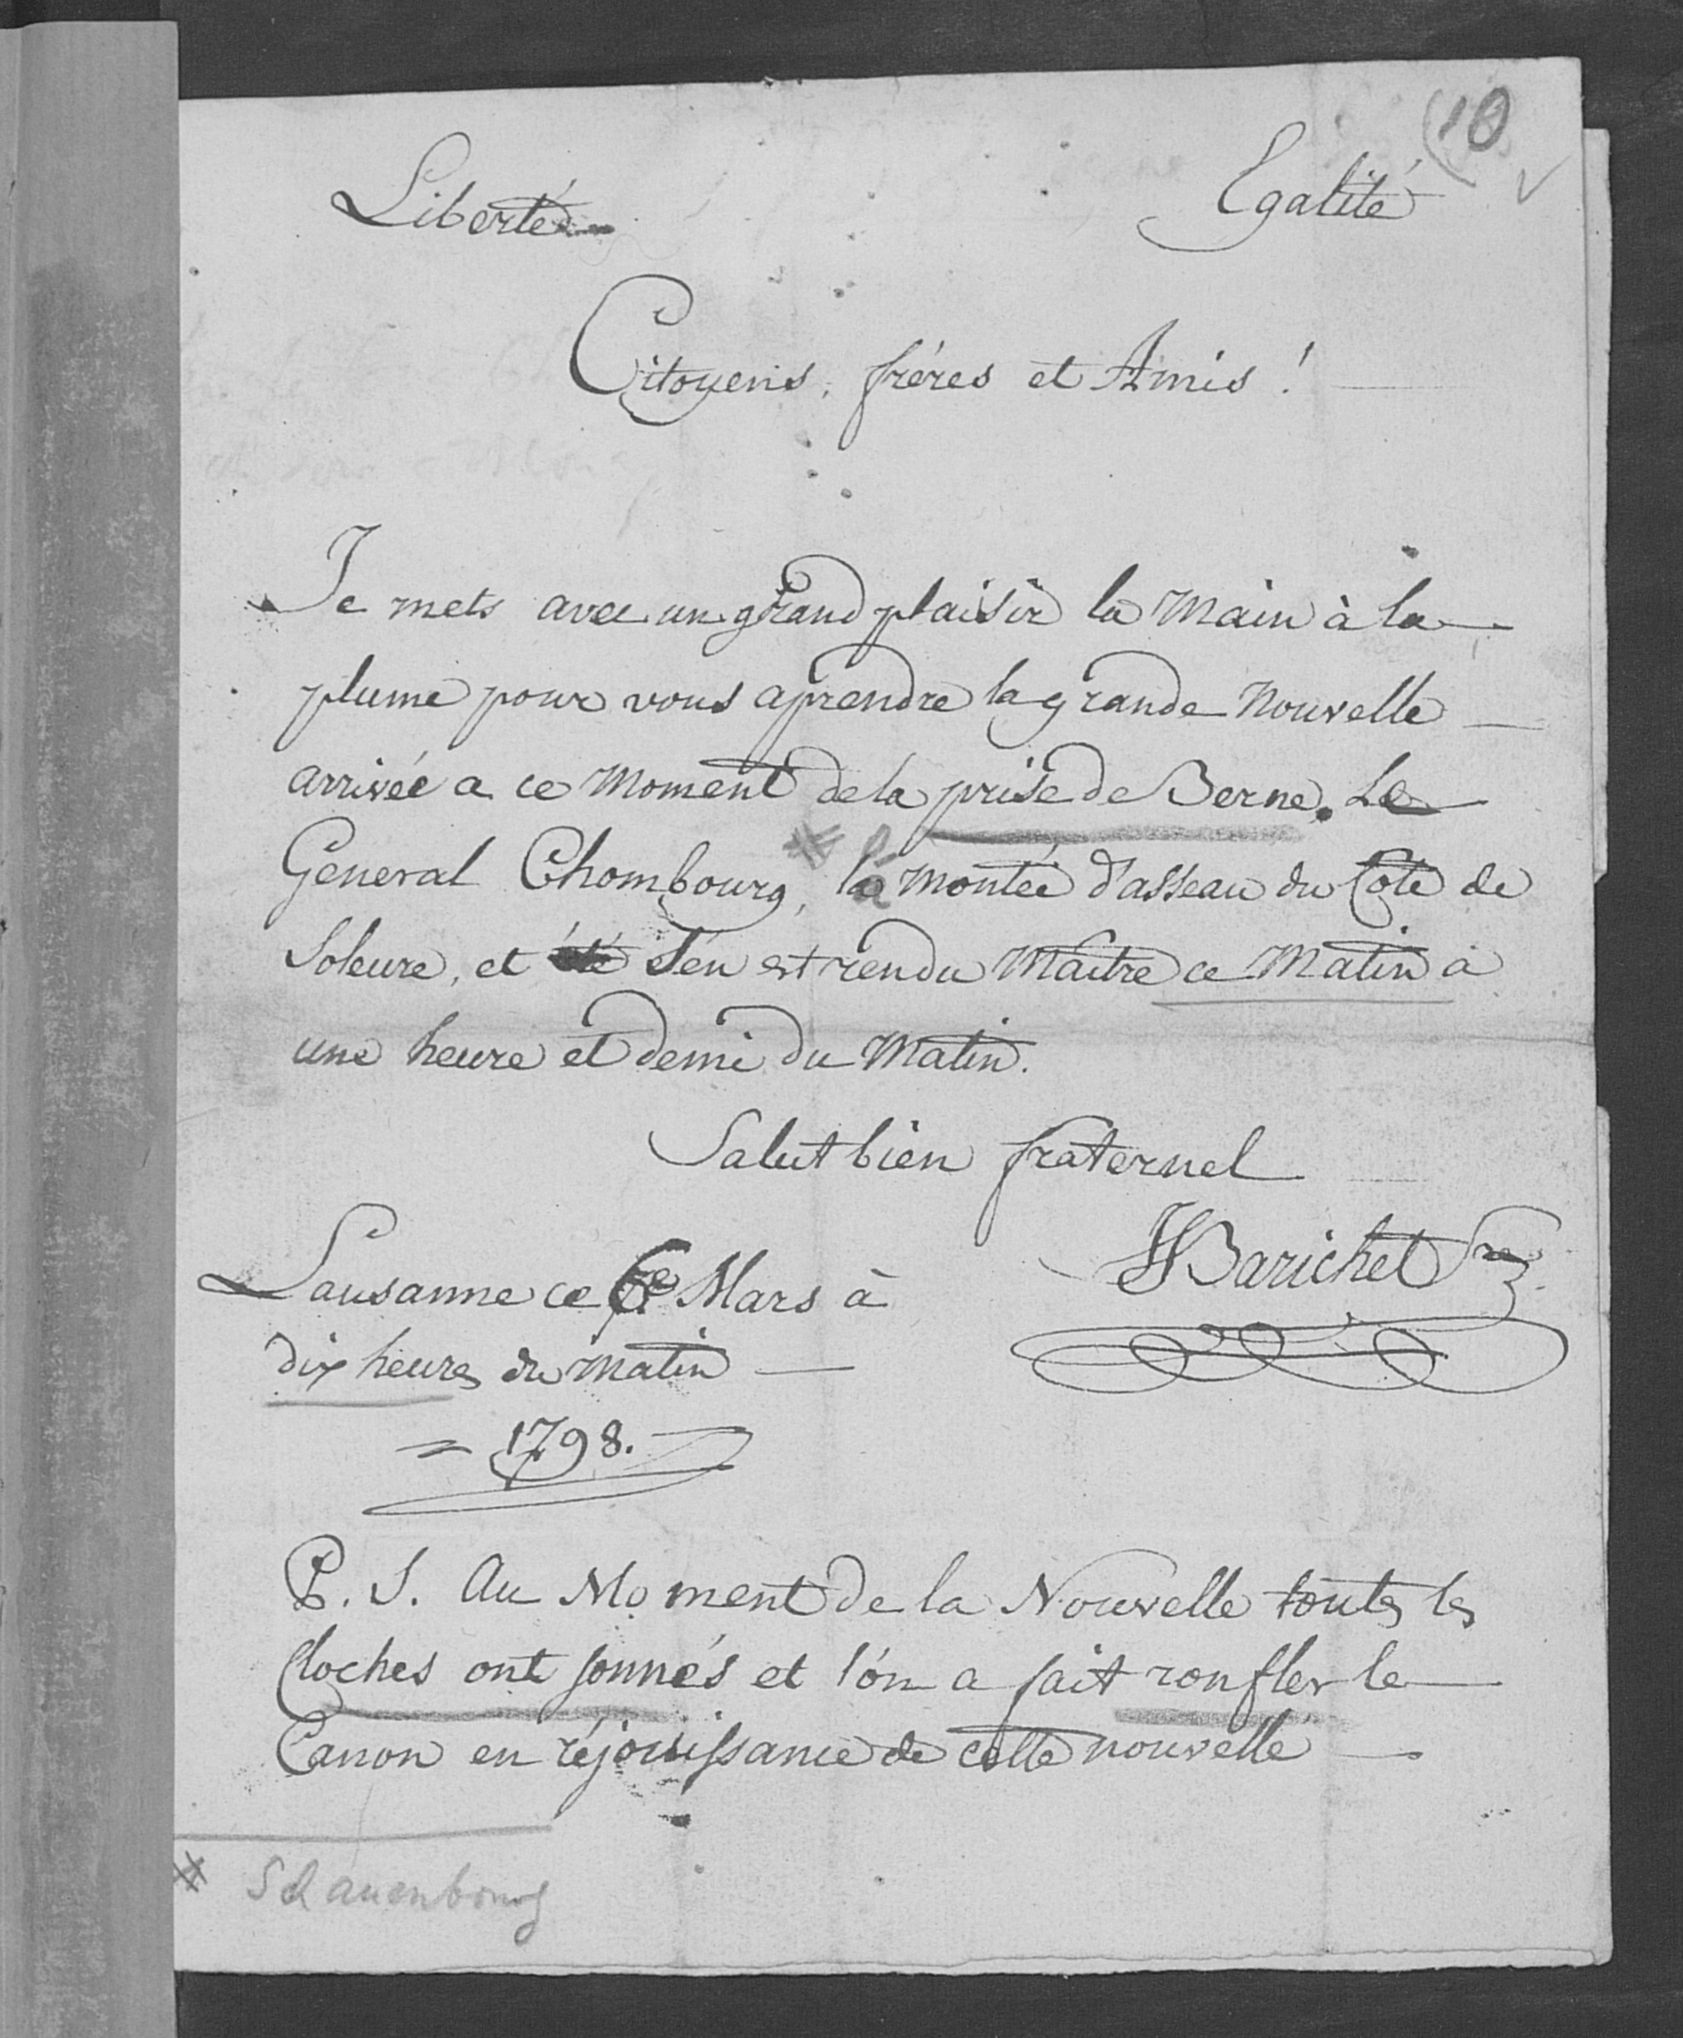 10
Liberté Egalité
Citoyens, fréres et Amis !
Je mets avec un grand plaisir la Main à la
plume pour vous aprendre la grande Nouvelle
arrivée a ce Moment de la prise de Berne. Le
General Chombourg, la montée d'asseau du Coté de
Soleure, et été s'én est rendu Maitre ce Matin à
une heure et demi du Matin.
Salut bien fraternel
Lausanne ce 6e Mars à
Barichet
dix heures du matin
= 1798.
P. S. Au Moment de la Nouvelle toutes les
Cloches ont sonnés et l'ón a fait ronfler le
Canon en réjouissance de cette nouvelle
# Schauenbourg